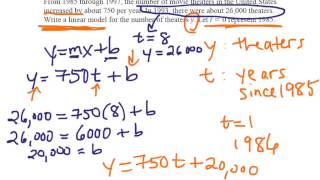 From 1985 through 1997, the number of movie theaters in the United States
increased by about 750 per year. In 1993, there were about 26,000 theaters.
Write a linear model for the number of theaters y. Let t = 0 represent 1985.
y=mx+b
t=8
y=26,000
y: theaters
y=750t+b
t: years
since 1985
26,000=750(8)+b
26,000=6000+b
20,000=b
t=1
1986
y=750t+20,000